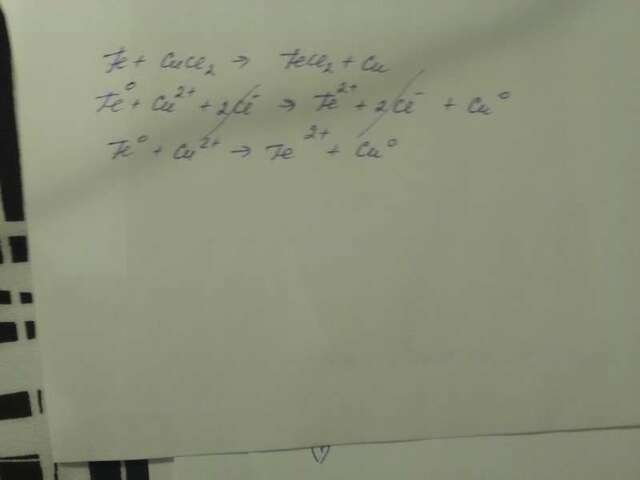 Fe + CuCl₂ → FeCl₂ + Cu
Fe⁰ + Cu²⁺ + 2Cl⁻ → Fe²⁺ + 2Cl⁻ + Cu⁰
Fe⁰ + Cu²⁺ → Fe²⁺ + Cu⁰